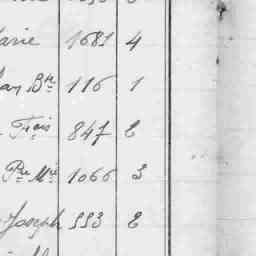 arie 1681 4
an Bte 116 1
Frçois 847 2
Pre Mie 1066 3
Joseph 993 2